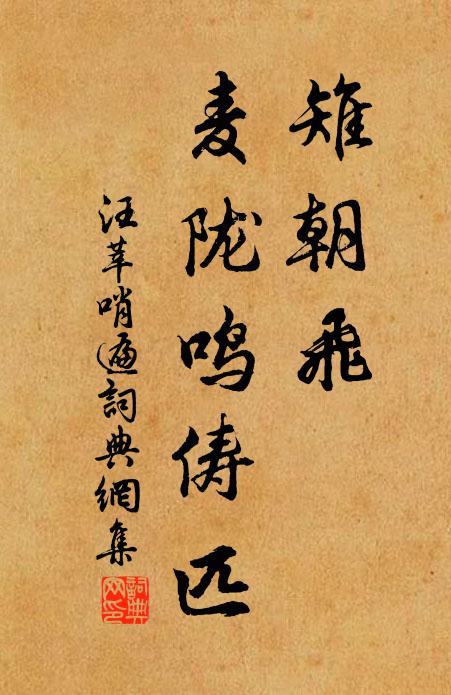 雉朝飞
麦陇鸣俦匹
汪莘哨遍词典網集
詞典网印